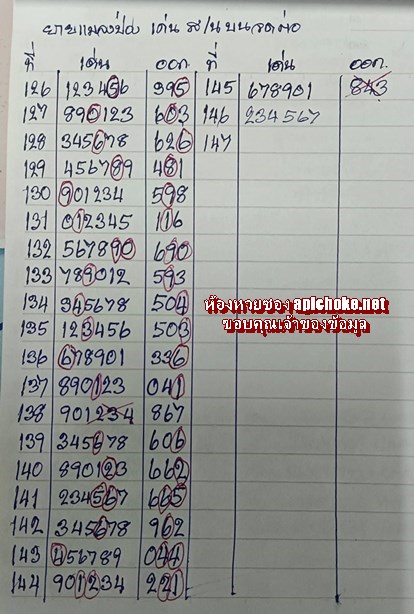 ยายแมลงป่อง เด่น ส/น บน จดต่อ
ที่ เด่น ออก. ที่ เด่น ออก.
126 123456 395 145 678901 843
127 890123 603 146 234567
128 345678 626 147
129 456789 481
130 901234 598
131 012345 116
132 567890 690
133 789012 593
134 345678 504
135 123456 503
136 678901 336
137 890123 041
138 901234 867
139 345678 606
140 890123 662
141 234567 665
142 345678 962
143 456789 044
144 901234 221
ห้องหวยซอง apichoke.net
ขอบคุณเจ้าของข้อมูล